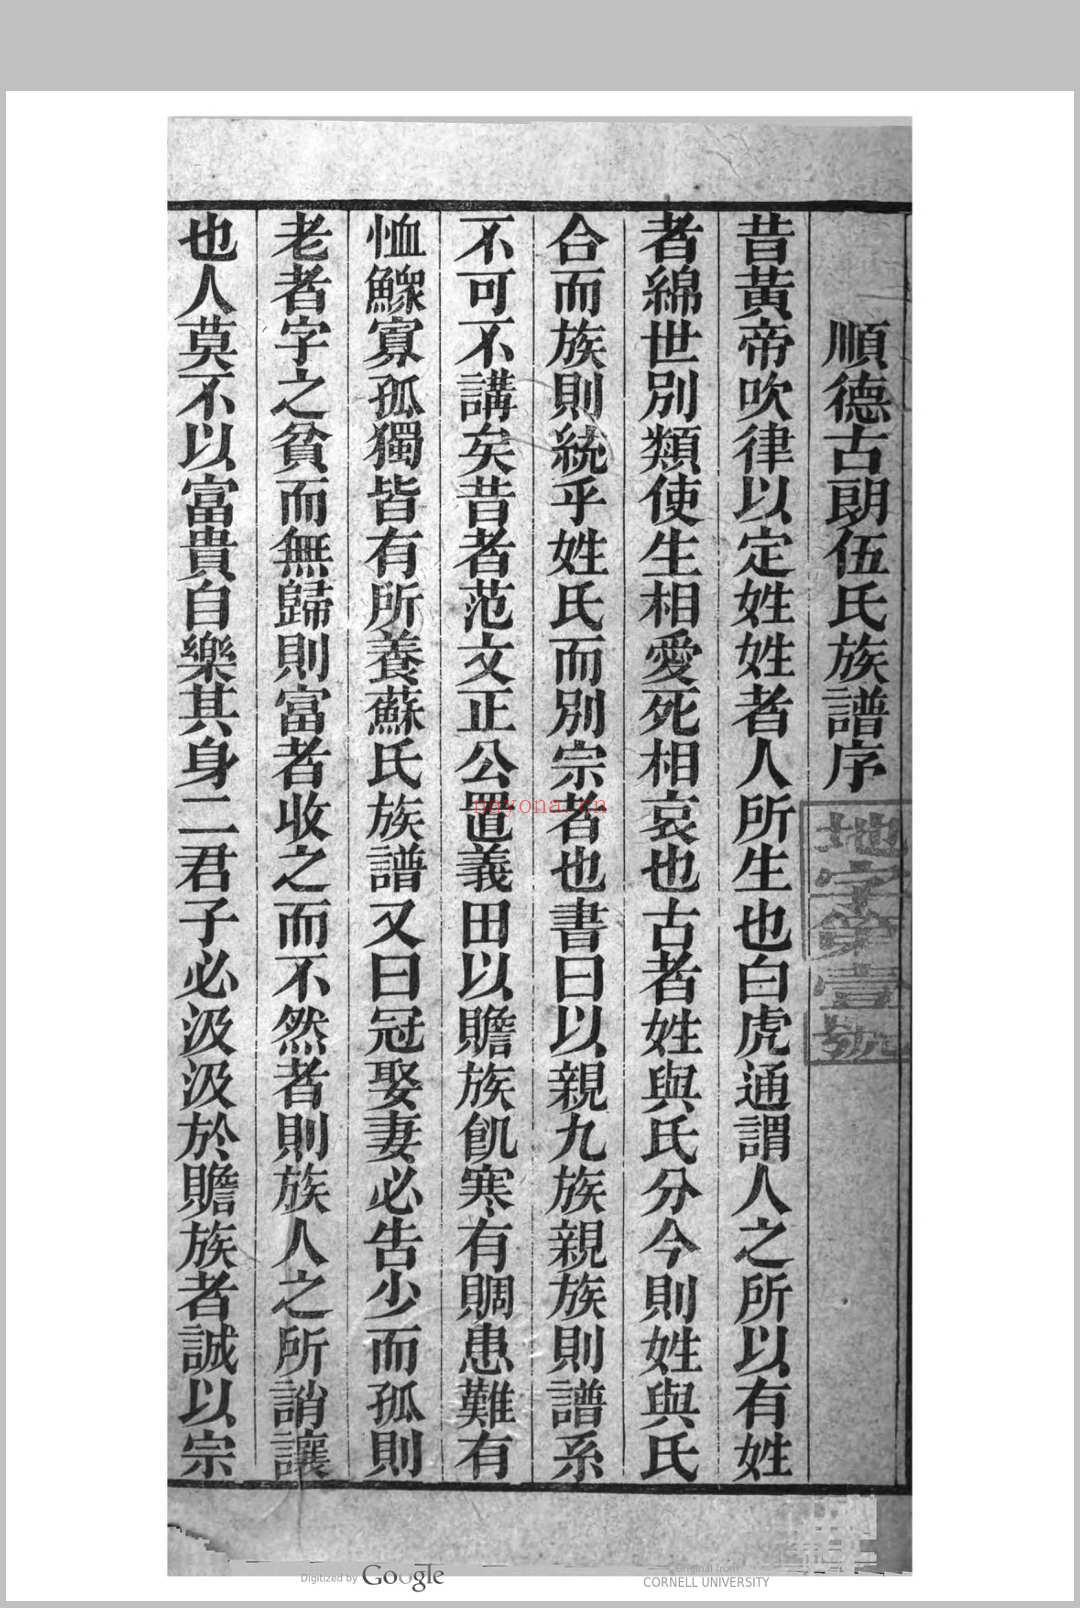 順德古朗伍氏族譜序
地字第壹號
昔黃帝吹律以定姓姓者人所生也白虎通謂人之所以有姓
者綿世別類使生相愛死相哀也古者姓與氏分今則姓與氏
合而族則統乎姓氏而別宗者也書曰以親九族親族則譜系
不可不講矣昔者范文正公置義田以贍族飢寒有賙患難有
恤鰥寡孤獨皆有所養蘇氏族譜又曰冠娶妻必告少而孤則
老者字之貧而無歸則富者收之而不然者則族人之所誚讓
也人莫不以富貴自樂其身二君子必汲汲於贍族者誠以宗
nayona.cn
Digitized by Google
Original from
CORNELL UNIVERSITY